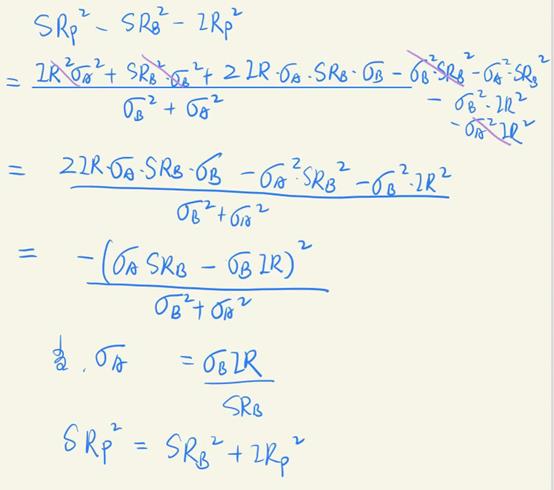 SRp² - SRB² - IRp²
= (IR²σA² + SRB²·σB² + 2IR·σA·SRB·σB - σB²·SRB² - σA²·SRB² - σB²·IR² - σA²IR²) / (σB² + σA²)
= (2IR·σA·SRB·σB - σA²·SRB² - σB²·IR²) / (σB² + σA²)
= -(σA SRB - σB IR)² / (σB² + σA²)
当. σA = σB IR / SRB
SRp² = SRB² + IRp²